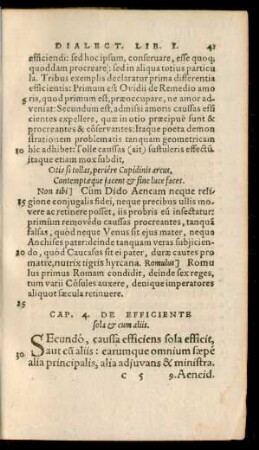 DIALECT. LIB. I. 41
efficiendi: sed hoc ipsum, conseruare, esse quoq;
quoddam procreare: sed in aliqua totius particu
la. Tribus exemplis declaratur prima differentia
efficientis: Primum est Ovidii de Remedio amo
5 ris, quod primum est, præoccupare, ne amor ad-
veniat: Secundum est, admissi amoris caussas effi
cientes expellere, quæ in otio præcipuè sunt &
procreantes & cōservantes: Itaque poeta demon
strationem problematis tanquam geometricam
10 hic adhibet: Tolle caussas (ait) sustuleris effectū,
itaque etiam mox subdit,
Otia si tollas, periêre Cupidinis arcus,
Contemptæque jacent & sine luce faces.
Non tibi] Cùm Dido Aeneam neque reli-
15 gione conjugalis fidei, neque precibus ullis mo-
vere ac retinere posset, iis probris eū insectatur:
primùm removēdo caussas procreantes, tanquā
falsas, quòd neque Venus sit ejus mater, nequo
Anchises pater: deinde tanquam veras subjicien-
20 do, quòd Caucasus sit ei pater, duræ cautes pro
matre, nutrix tigris hyrcana. Romulus] Romu
lus primus Romam condidit, deinde sex reges,
tum varii Cōsules auxere, denique imperatores
aliquot sæcula retinuere.
25
CAP. 4. DE EFFICIENTE
sola & cum aliis.
SEcundò, caussa efficiens sola efficit,
30 aut cū aliis: earumque omnium sæpè
alia principalis, alia adjuvans & ministra.
c 5 9. Aeneid.